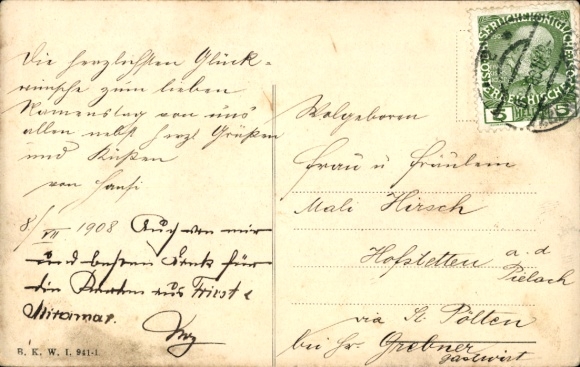 Die herzlichsten Glück-
wünsche zum lieben
Namenstag von uns
allen nebst herzl Grüßen
und Küßen
von Hansi
8/VII 1908 Auch von mir
und besten Dank für
die Karten aus Triest &
Miramar.
B. K. W. I. 941-1
Wolgeboren
Frau u Fräulein
Mali Hirsch
Hofstetten a. d
Pielach
via St. Pölten
bei Hr. Grebner
Gastwirt
5 5